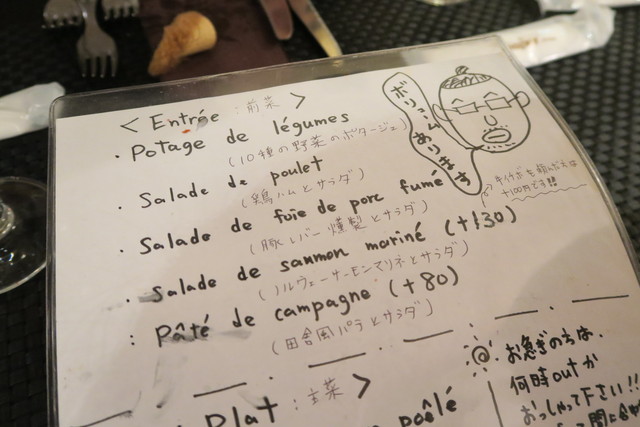 < Entrée : 前菜 >
・Potage de légumes
(10種の野菜のポタージュ)
・Salade de poulet
(鶏ハムとサラダ)
・Salade de foie de porc fumé
(豚レバー燻製とサラダ)
・Salade de saumon mariné (+130)
(ノルウェーサーモンマリネとサラダ)
・Pâté de campagne (+80)
(田舎風パテとサラダ)
ボリュームあります
+100円です
Plat : 主菜 >
poêlé
お急ぎの方は、
何時outか
おっしゃって下さい!!